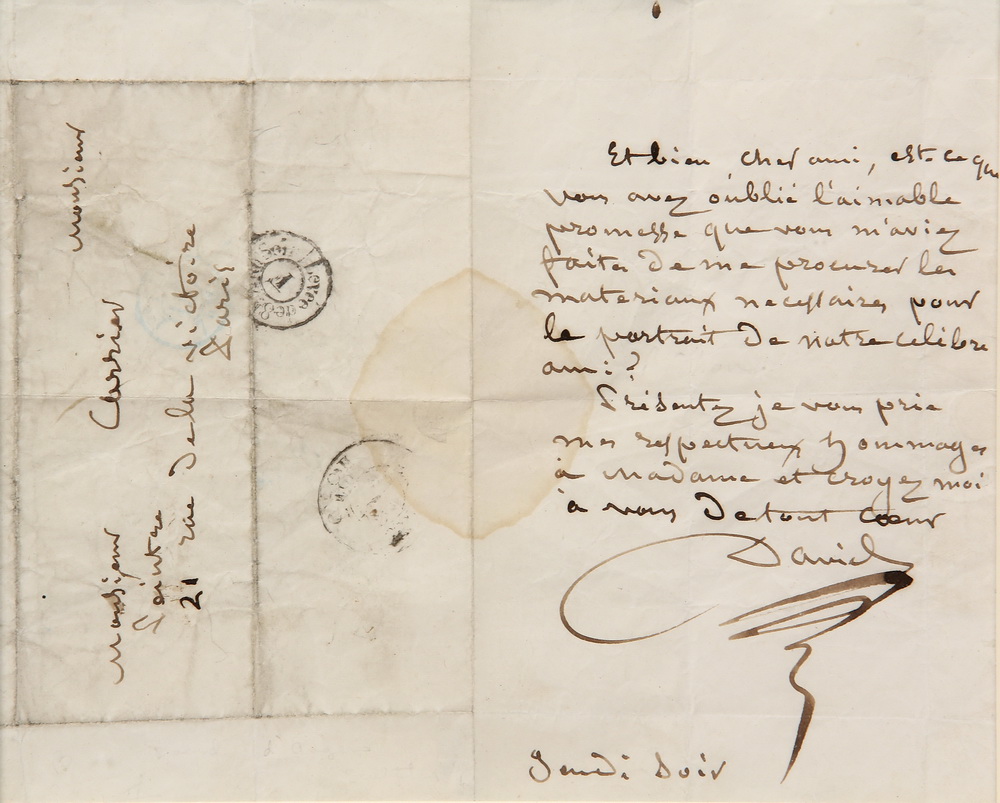 Monsieur
Monsieur Carrier
Peintre
21 rue De la victoire
Paris
Et bien cher ami, est-ce que
vous avez oublié l'aimable
promesse que vous m'aviez
faite De me procurer les
materiaux necessaires pour
le portrait De notre celèbre
ami?
Présentez je vous prie
mes respectueux hommages
à Madame et croyez moi
à vous De tout cœur
David
Jeudi soir